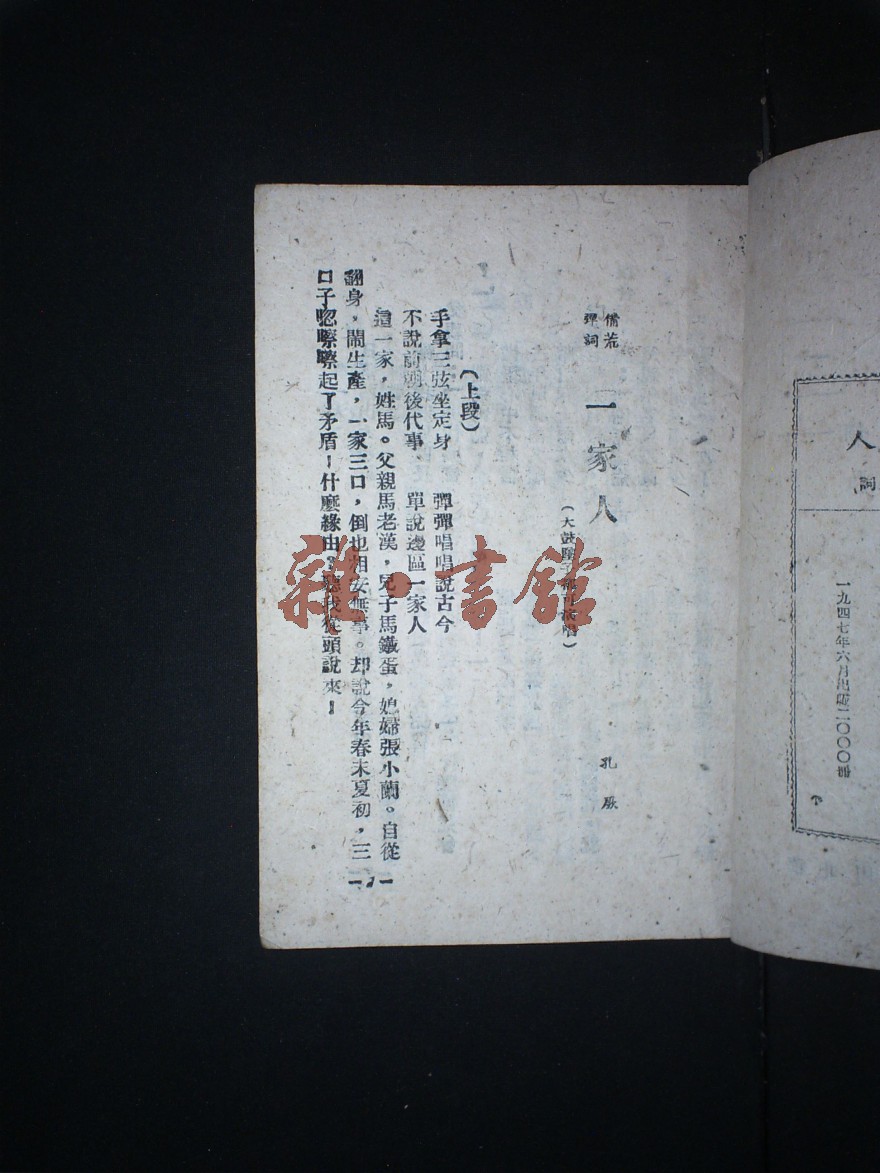 人
詞
一九四七年六月出版二〇〇〇冊
備荒
彈詞
一家人
（大鼓
演唱）
孔厥
（上段）
手拿三弦坐定身　彈彈唱唱說古今
不說前朝後代事　單說邊區一家人
這一家，姓馬。父親馬老漢，兒子馬鐵蛋，媳婦張小蘭。自從
翻身，鬧生產，一家三口，倒也相安無事。却說今年春末夏初，三
口子唿嚓嚓起了矛盾！什麼緣由？聽我從頭說來！
—1—
雜·書館